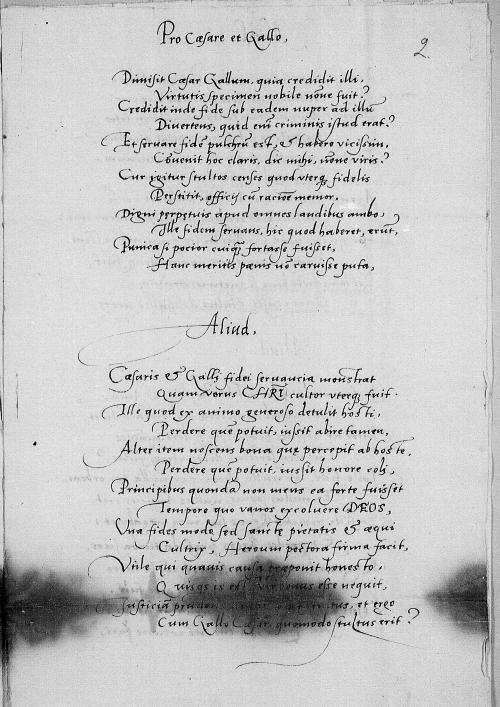 Pro Cæsare et Gallo,
2
Dimisit Cæsar Gallum, quia credidit illi,
Virtutis specimen nobile nõne fuit?
Credidit inde fide sub eadem nuper ad illũ
Divertens, quid eni criminis istud erat?
Et servare fidẽ pulchrũ est, & habere vicissim,
Cõuenit hoc claris, dic mihi, nõne viris?
Cur igitur stultos censes quod uterq; fidelis
Perstitit, officij cũ racione memor.
Digni perpetuis apud omnes laudibus ambo,
Ille fidem servans, hic quod haberet, erũt,
Punica si pocior cuiq; fortasse fuisset,
Hanc meritis pænis nõ caruisse puta,
Aliud,
Cæsaris & Galli fidei servancia monstrat
Quam verus CHRI cultor uterq; fuit.
Ille quod ex animo generoso detulit hosti,
Perdere quẽ potuit, iussit abire tamen,
Alter item noscens bona quę percepit ab hoste,
Perdere quẽ potuit, iussit honore coli,
Principibus quondã non mens ea forte fuisset
Tempore quo vanos excoluere DEOS,
Una fides modo sed sancte pietatis & æqui
Cultrix, Heroum pectora firma facit,
Utile qui quavis causa præponit honesto,
Quisq; is est, vir bonus esse nequit,
Justiciam et ergo
Cum Gallo Cæsar, quomodo stultus erit?